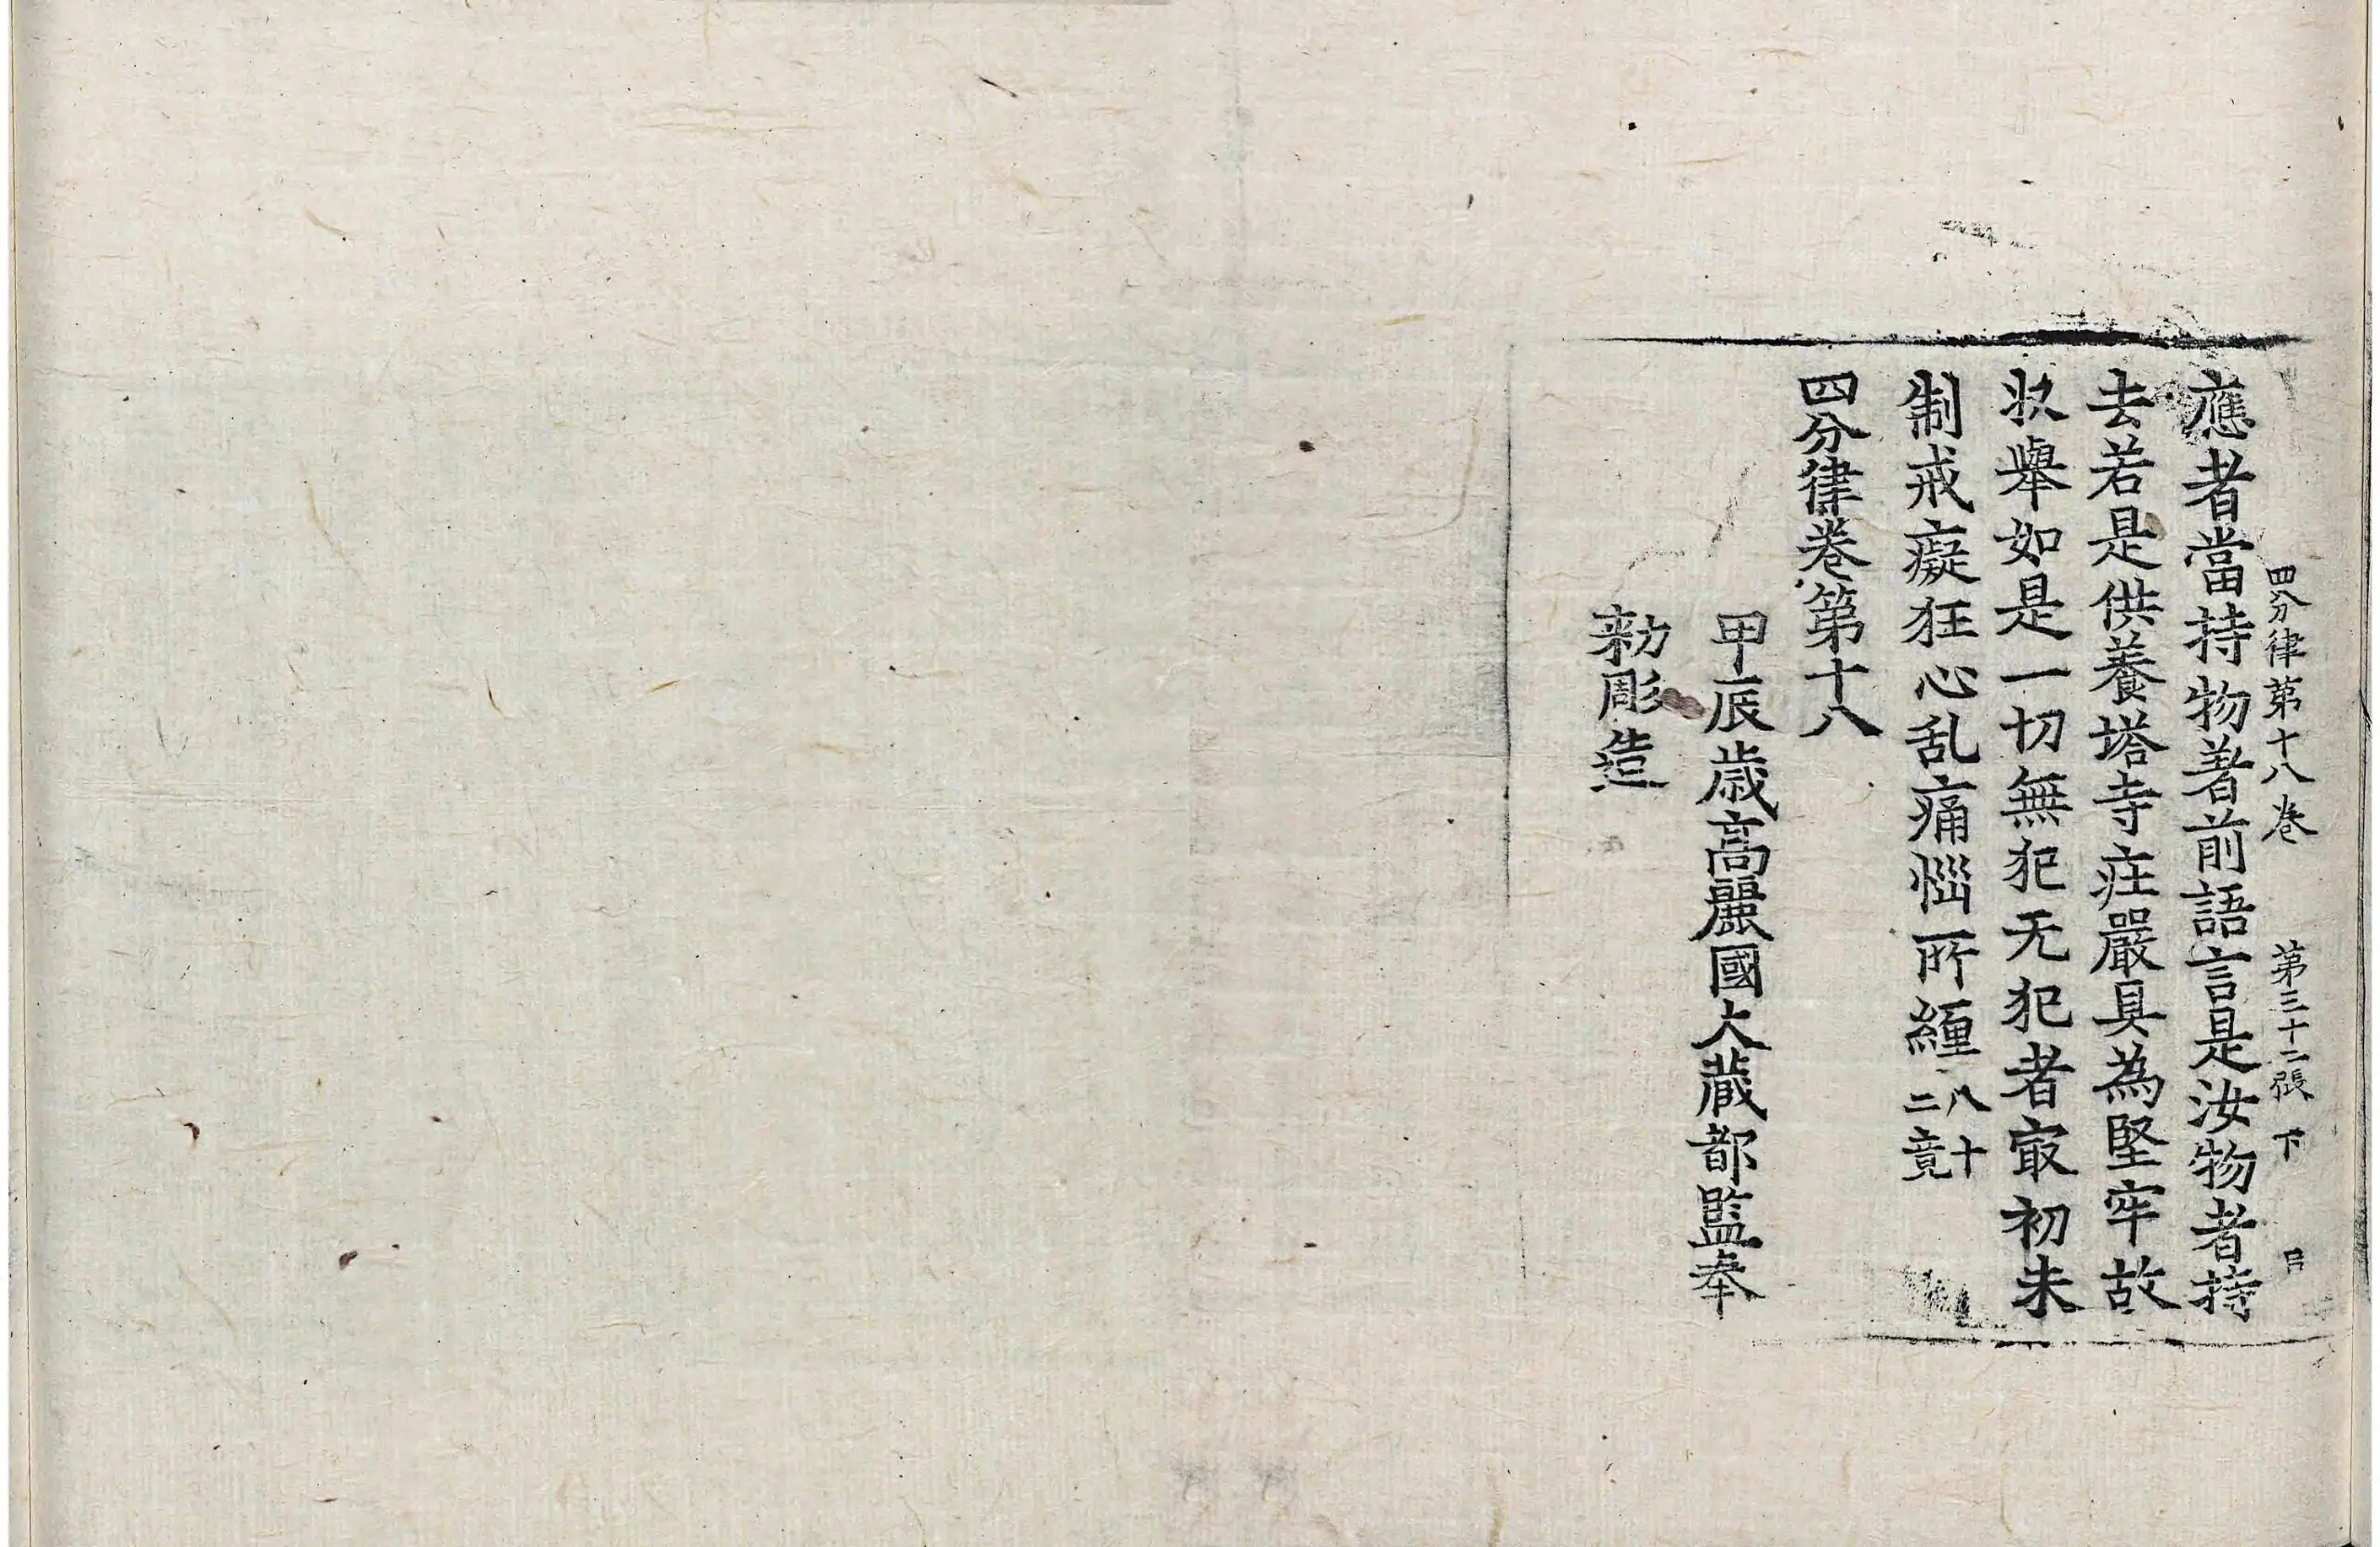 四分律第十八卷 第三十二張 下
應者當持物著前語言是汝物者持
去若是供養塔寺庄嚴具為堅牢故
狀舉如是一切無犯无犯者冣初未
制戒癡狂心乱痛惱所纏八十二竟
四分律卷第十八
甲辰歲高麗國大藏都監奉
勅彫造